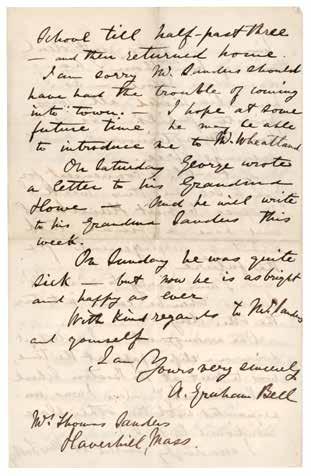 School till half-past three
— and then returned home.
I am sorry Mr. Sanders should
have had the trouble of coming
into town. — I hope at some
future time, he may be able
to introduce me to Mr. Wheatland
On Saturday George wrote
a letter to his Grandma
Howe — And he will write
to his Grandma Sanders this
week.
On Sunday he was quite
sick — but now he is as bright
and happy as ever
With kind regards to Mr. Sanders
and yourself
I am
Yours very sincerely
A. Graham Bell
Mrs Thomas Sanders
Haverhill Mass.